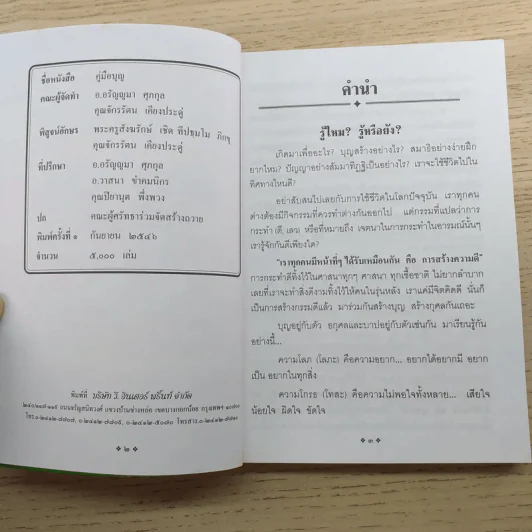 ชื่อหนังสือ คู่มือบุญ
คณะผู้จัดทำ อ.อรัญญมา ศุภกุล
คุณจักรรัตน เคียงประดู่
พิสูจน์อักษร พระครูสังฆรักษ์ เชิด
คุณจักรรัตน เคียงประดู่
ที่ปรึกษา อ.อรัญญมา ศุภกุล
อ.วาสนา ชำคมนิกร
คุณปิยานุต พึ่งพวง
ปก คณะผู้ศรัทธาร่วมจัดสร้างถวาย
พิมพ์ครั้งที่ ๑ กันยายน ๒๕๔๖
จำนวน ๕,๐๐๐ เล่ม
พิมพ์ที่ บริษัท วี. อินเตอร์ พริ้นท์ จำกัด
ถนนจรัญสนิทวงศ์ แขวงบ้านช่างหล่อ เขตบางกอกน้อย กรุงเทพฯ
๒
คำนำ
รู้ไหม? รู้หรือยัง?
เกิดมาเพื่ออะไร? บุญสร้างอย่างไร? สมาธิอย่างง่ายฝึก
ยากไหม? ปัญญาอย่างสัมมาทิฏฐิเป็นอย่างไร? เราจะใช้ชีวิตไปใน
ทิศทางไหนดี?
อย่าสับสนไปเลยกับการใช้ชีวิตในโลกปัจจุบัน เราทุกคน
ต่างต้องมีกิจกรรมที่ควรทำต่างกันออกไป แต่กรรมที่แปลว่าการ
กระทำ (ดี, เลว) หรือที่หมายถึง เจตนาในการกระทำในอารมณ์นั้นๆ
เรารู้จักกันดีเพียงใด?
"เราทุกคนมีหน้าที่ๆ ได้รับเหมือนกัน คือ การสร้างความดี"
การกระทำดีทิ้งไว้ในศาสนาทุกๆ ศาสนา ทุกเชื้อชาติ ไม่ยากลำบาก
เลยที่เราจะทำสิ่งดีงามทิ้งไว้ให้คนในรุ่นหลัง เราแค่มีจิตคิดดี นั่นก็
เป็นการสร้างกรรมดีแล้ว มาร่วมกันสร้างบุญ สร้างกุศลกันเถอะ
บุญอยู่กับตัว อกุศลและบาปอยู่กับตัวเช่นกัน มาเรียนรู้กัน
อย่างนี้...
ความโลภ (โลภะ) คือความอยาก... อยากได้อยากมี อยาก
เป็น อยากในทุกสิ่ง
ความโกรธ (โทสะ) คือความไม่พอใจทั้งหลาย... เสียใจ
น้อยใจ ผิดใจ ขัดใจ
๓